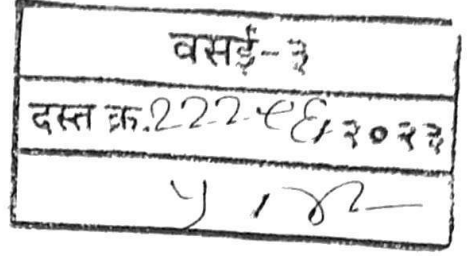 वसई-३
दस्त क्र.222९६/२०२३